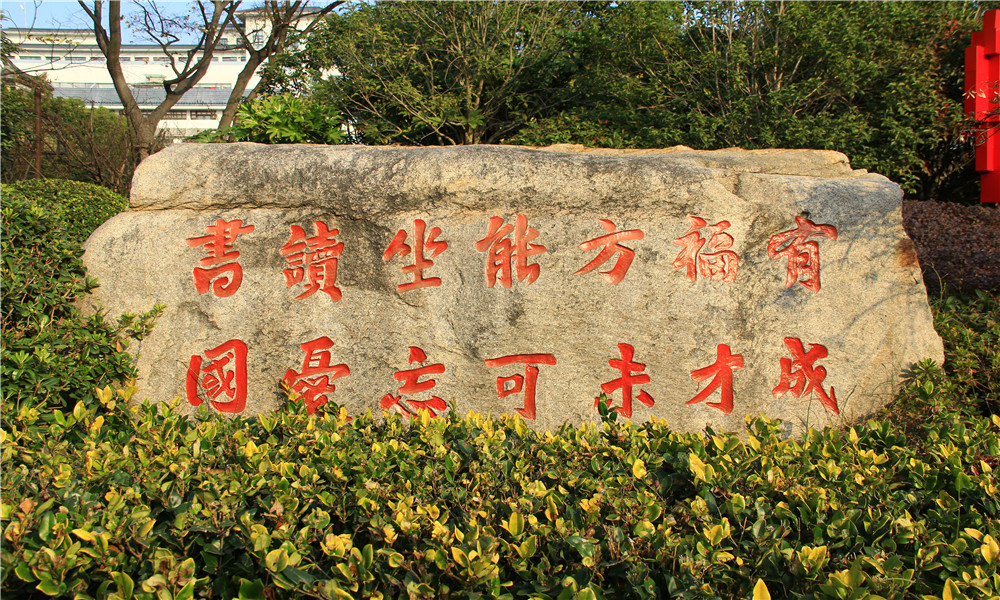 有福方能坐讀書
成才未可忘憂國